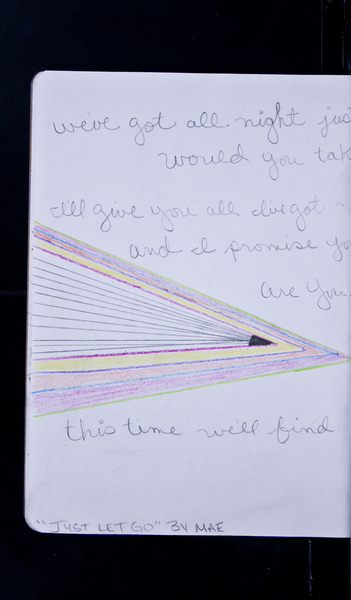 we've got all night jus
would you tak
I'll give you all I've got
and I promise yo
are you
this time we'll find
"JUST LET GO" BY MAE